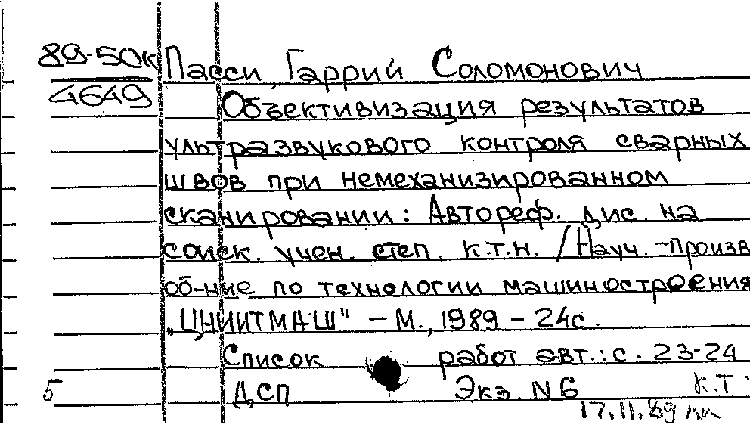 89-50к Пасси, Гаррий Соломонович
4649 Объективизация результатов
ультразвукового контроля сварных
швов при немеханизированном
сканировании: Автореф. дис. на
соиск. учен. степ. к.т.н. / Науч.-произв
об-ние по технологии машиностроения
"ЦНИИТМАШ" – М., 1989 – 24с.
Список работ авт.: с. 23-24
5 ДСП Экз. N6 К.Т.
17.11.89